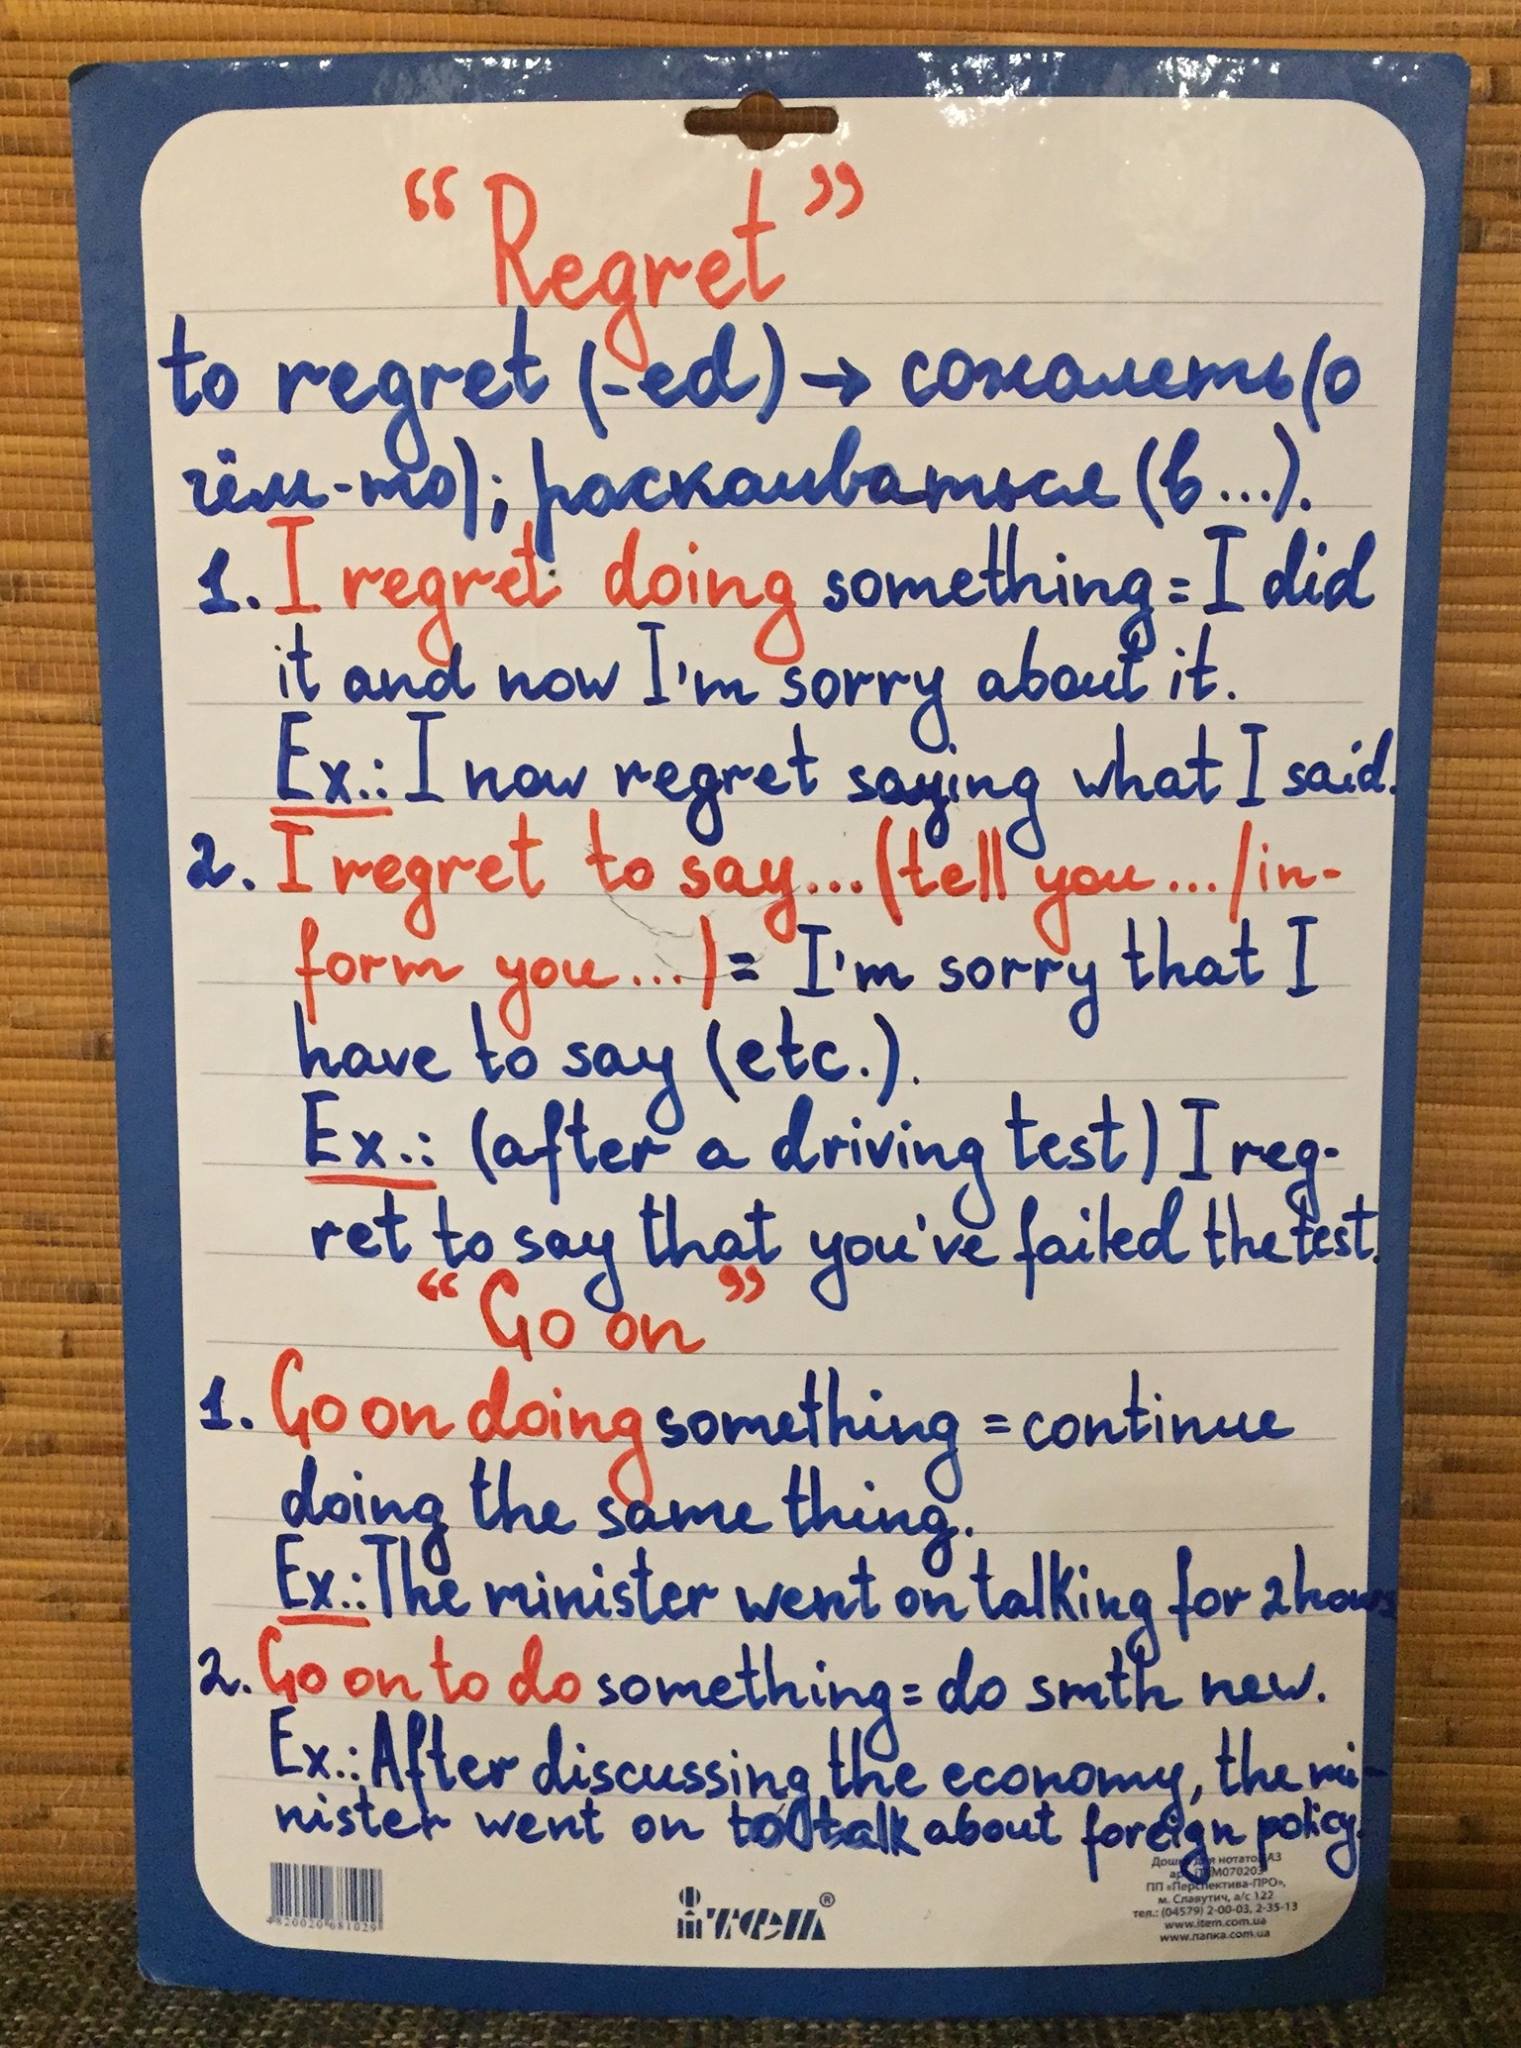 “Regret”
to regret (-ed) → сожалеть (о
чём-то); раскаиваться (в ...).
1. I regret doing something = I did
it and now I'm sorry about it.
Ex.: I now regret saying what I said.
2. I regret to say... (tell you... / in-
form you...) = I'm sorry that I
have to say (etc.).
Ex.: (after a driving test) I reg-
ret to say that you've failed the test.
“Go on”
1. Go on doing something = continue
doing the same thing.
Ex.: The minister went on talking for 2 hours
2. Go on to do something = do smth new.
Ex.: After discussing the economy, the mi-
nister went on to talk about foreign policy.
4820020681029
item®
Дошка для нотаток А3
арт. ITEM070203
ПП «Перспектива-ПРО»,
м. Славутич, а/с 122
тел.: (04579) 2-00-03, 2-35-13
www.item.com.ua
www.папка.com.ua